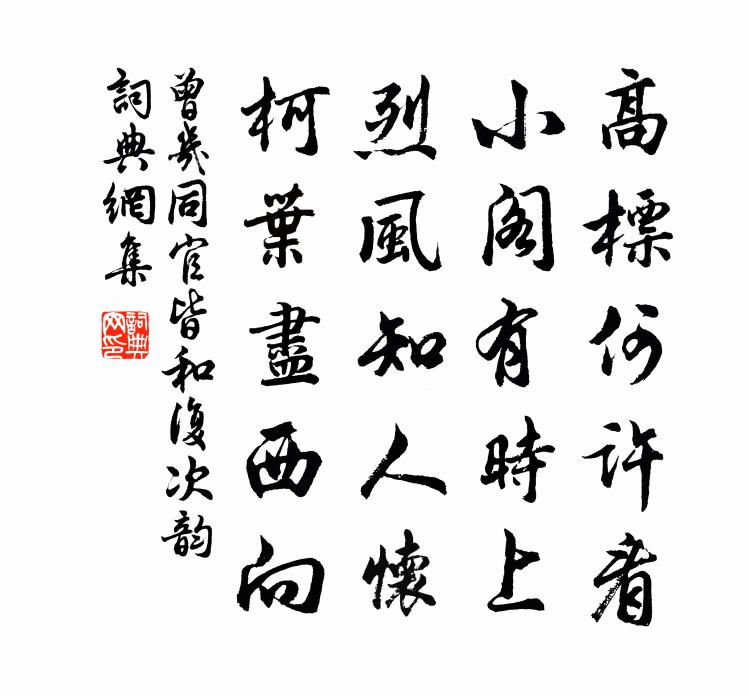 高標何許看
小閣有時上
烈風知人懷
柯葉盡西向
曾幾同官皆和復次韵
詞典網集
詞典網印